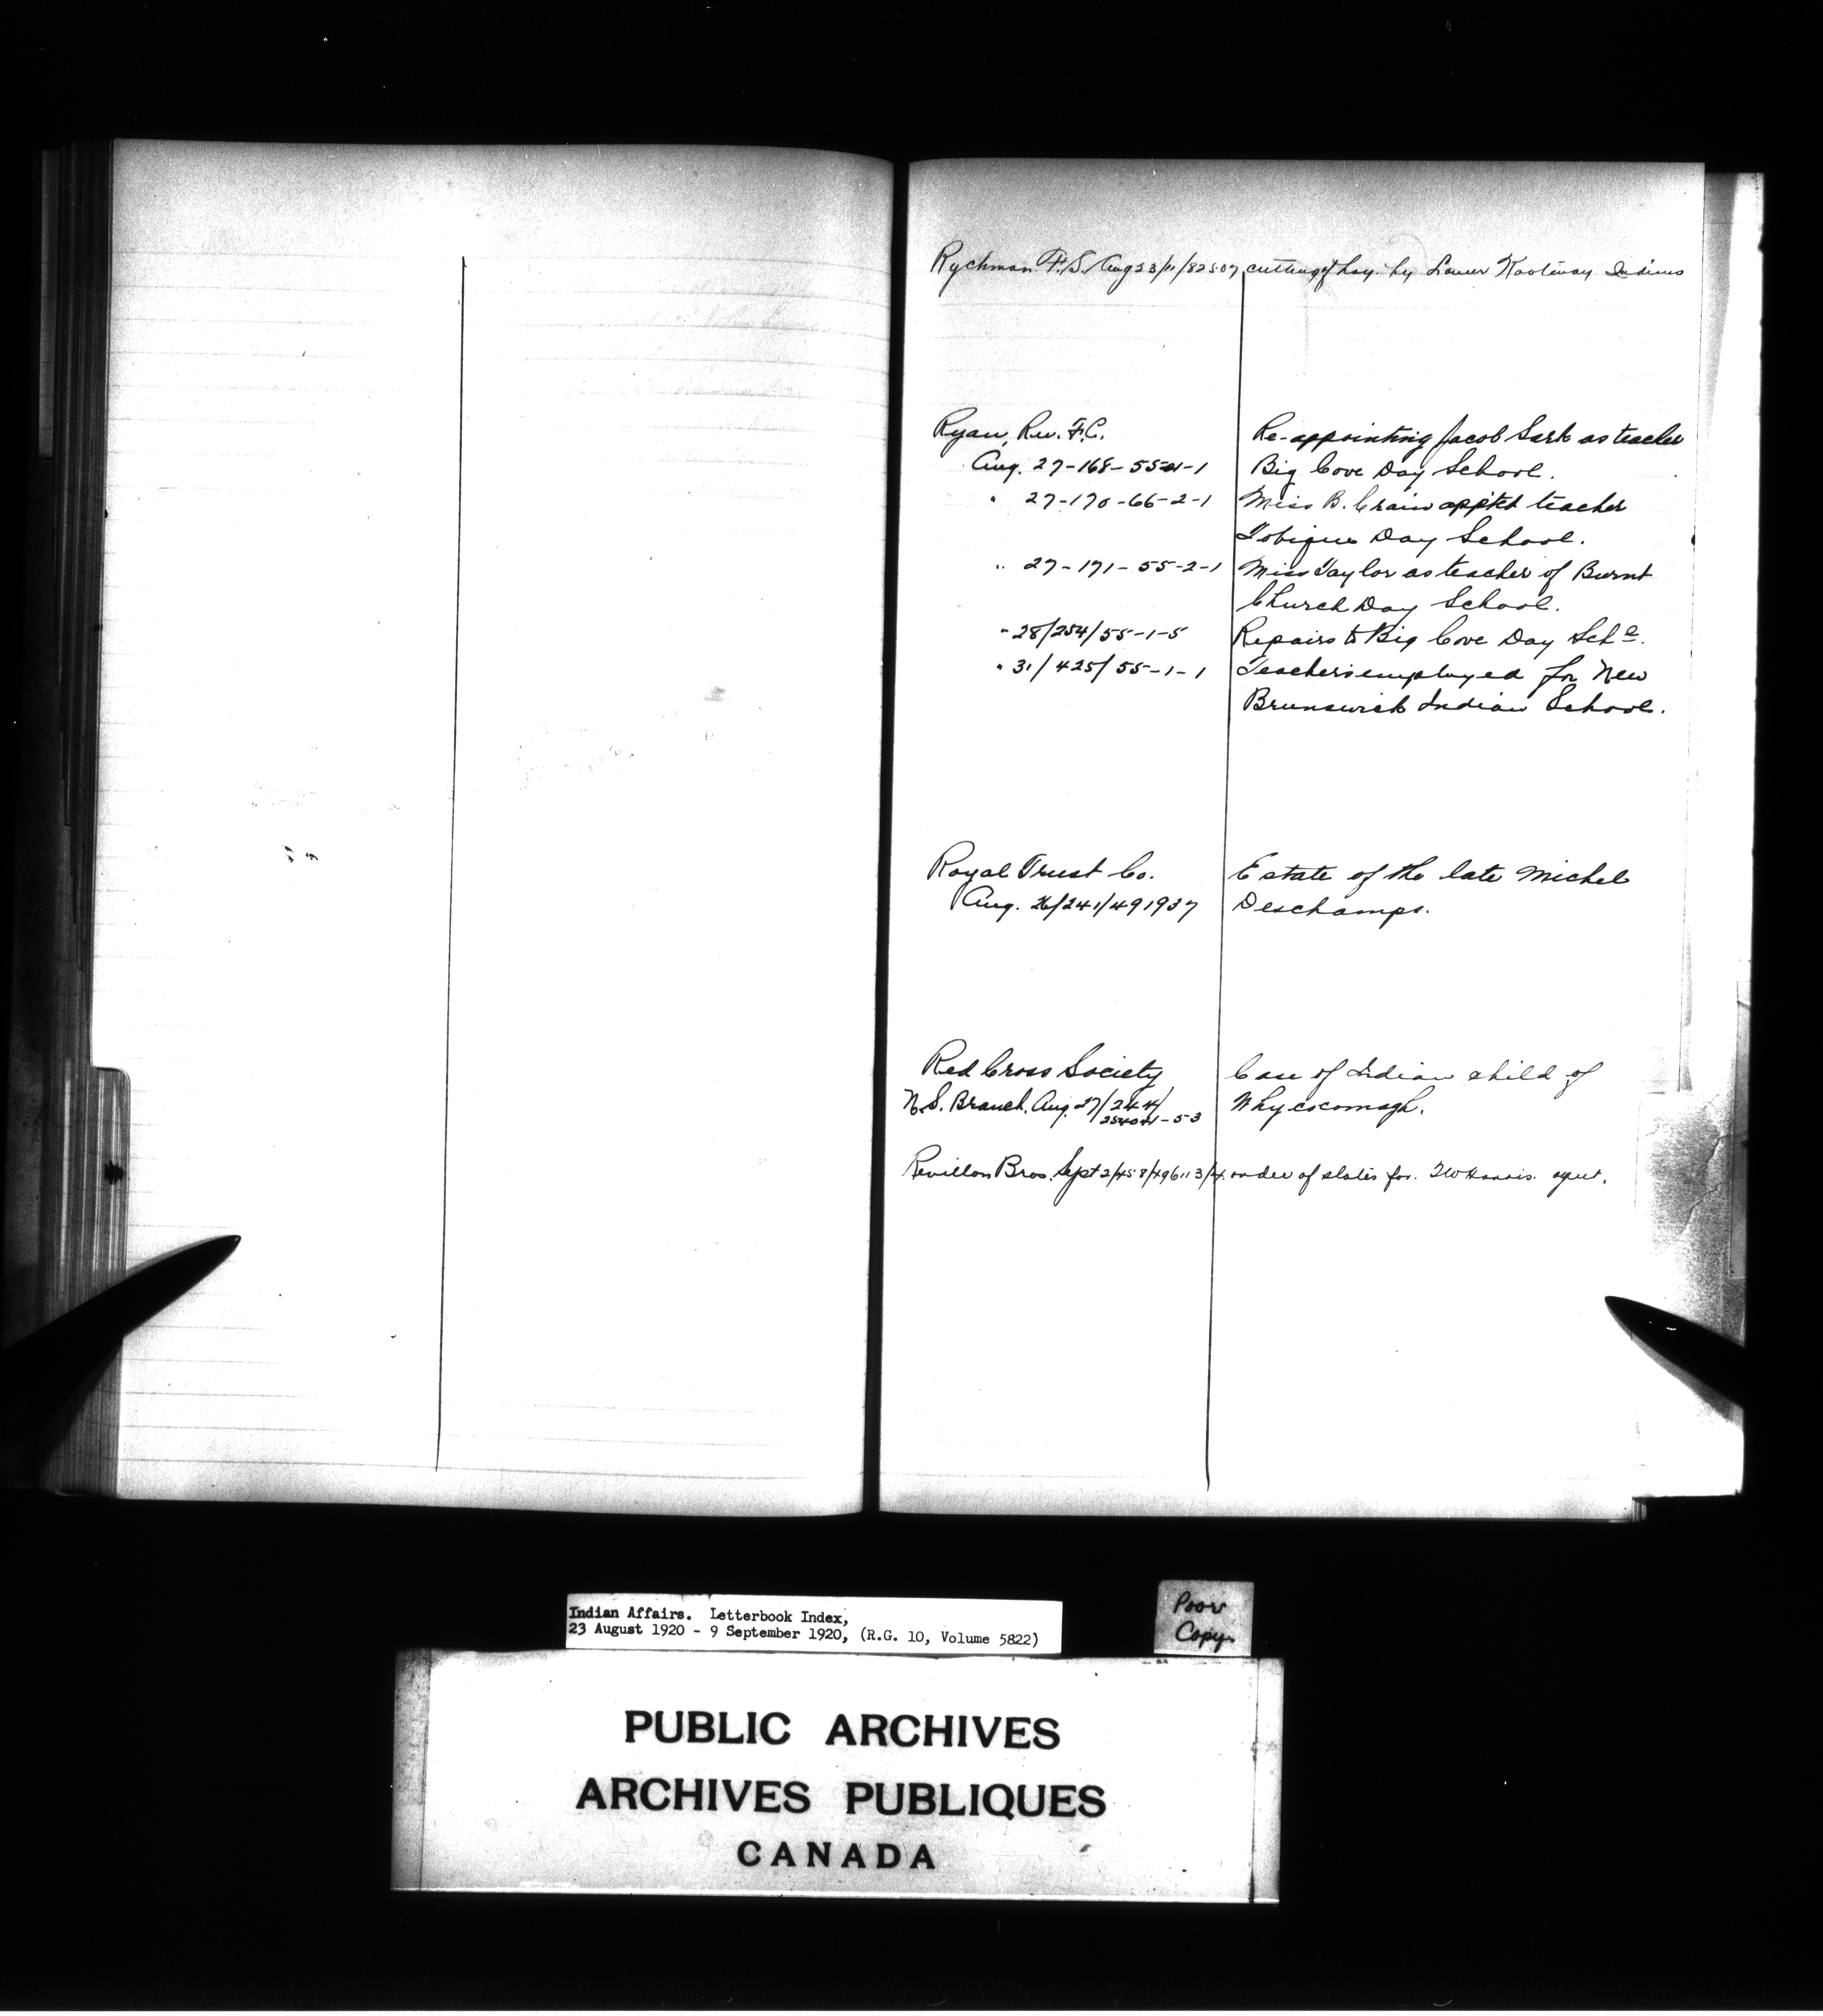 Rychman F.S. Aug 23/11/82507 cutting of hay by Lower Kootenay Indians
Ryan, Rev. F.C. Re-appointing Jacob Sark as teacher
Aug. 27-168-55-1-1 Big Cove Day School.
" 27-170-66-2-1 Miss B. Crain apptd teacher
Tobique Day School.
" 27-171-55-2-1 Miss Taylor as teacher of Burnt
Church Day School.
" 28/254/55-1-5 Repairs to Big Cove Day Schl.
" 31/425/55-1-1 Teachers employed for New
Brunswick Indian School.
Royal Trust Co. Estate of the late Michel
Aug. 26/241/491937 Deschamps.
Red Cross Society Case of Indian child of
N.S. Branch. Aug. 27/244/ Whycocomagh.
Revillon Bros. Sept 2/458/496113/4. order of slates for. T W Harris. agent.
Indian Affairs. Letterbook Index,
23 August 1920 - 9 September 1920, (R.G. 10, Volume 5822)
Poor
Copy
PUBLIC ARCHIVES
ARCHIVES PUBLIQUES
CANADA